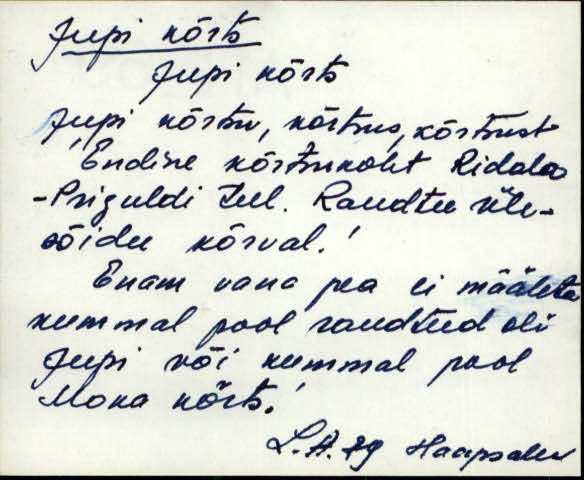 Jupi kõrts
Jupi kõrts
Jupi kõrtsu, kõrtsus, kõrtsust
Endine kõrtsukoht Ridala
-Priguldi tul. Raudtee üle-
sõidu kõrval.!
Enam vana pea ei mäleta
kummal pool raudteed oli
Jupi või kummal pool
Moka kõrts.!
L.A. 79 Haapsalu